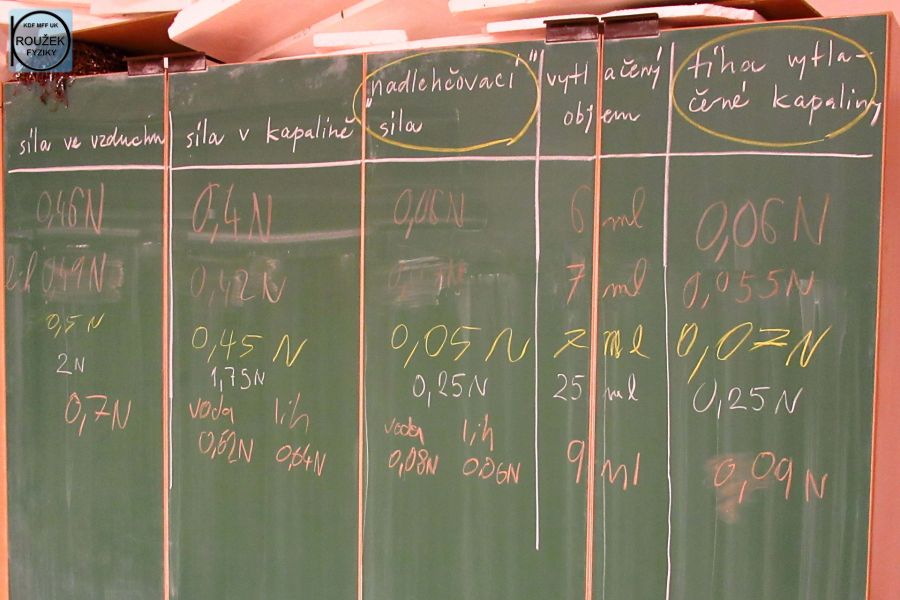 KDF MFF UK
ROUŽEK
FYZIKY
síla ve vzduchu síla v kapalině „nadlehčovací“ síla vytlačený objem tíha vytlačené kapaliny
0,46N 0,4N 0,06N 6 ml 0,06N
líh 0,49N 0,42N 7 ml 0,055N
0,5N 0,45N 0,05N 7 ml 0,07N
2N 1,75N 0,25N 25 ml 0,25N
0,7N voda líh voda líh 9 ml 0,09N
0,62N 0,64N 0,08N 0,06N